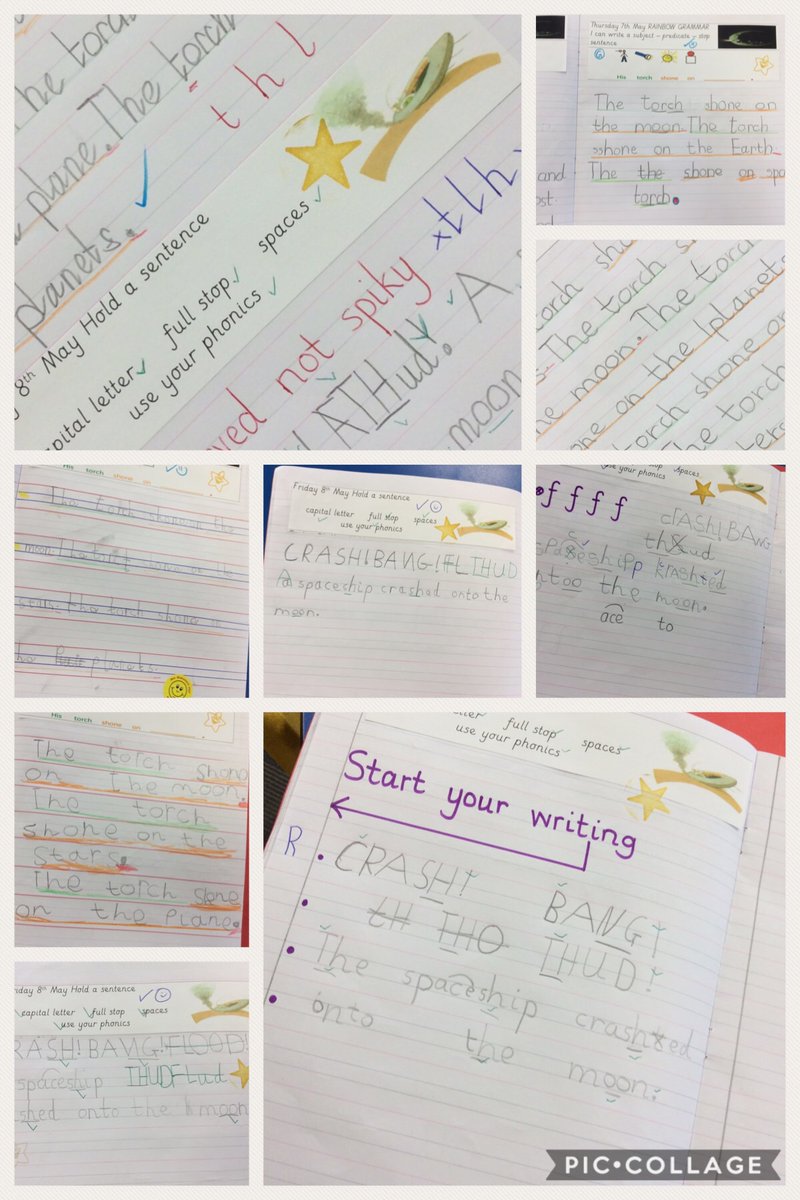 he torch
The torch
plane. The torch
planets.
t h l
8th May Hold a sentence
capital letter full stop spaces
use your phonics
not spiky
t l h
ATHud. A
moon
Thursday 7th May RAINBOW GRAMMAR
I can write a subject – predicate – stop
sentence
His torch shone on
The torch shone on
the moon. The torch
sshone on the Earth.
The the shone on spa
torch.
and
torch sho
The torch s
the moon. The torch
one on the planets
torch shone on
The torch
His torch shone on
The torch shone on the
moon. The torch shone on the
stars. the torch shone on
the planets.
Friday 8th May Hold a sentence
capital letter full stop spaces
use your phonics
CRASH! BANG! FL THUD
A spaceship crashed onto the
moon.
use your phonics spaces
f f f f
crASH! BANG
thud
spaseshipp krashted
ntoo the moon.
ace to
His torch shone on
The torch shone
on The moon.
The torch
shone on the
stars.
The torch slone
on the Plane.
iday 8th May Hold a sentence
capital letter full stop spaces
use your phonics
RASH! BANG! FLOOD!
spaceship THUD Flud
shed onto the moon
tter full stop spaces
use your phonics
Start your writing
R
CRASH! BANG!
tH THO THUD!
The spaceship crashted
onto the moon.
PIC•COLLAGE